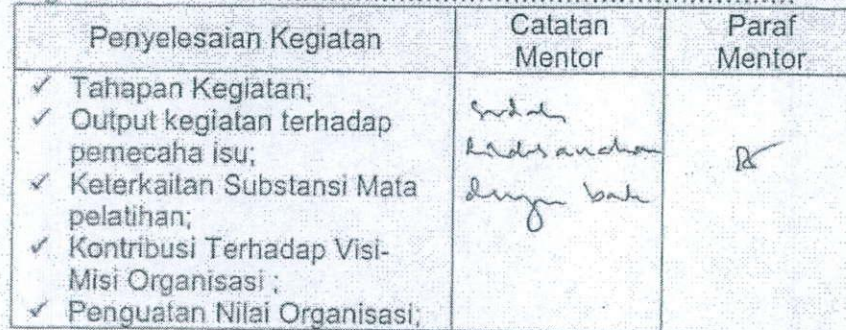 Penyelesaian Kegiatan
Catatan
Mentor
Paraf
Mentor
✓ Tahapan Kegiatan;
✓ Output kegiatan terhadap
pemecaha isu;
✓ Keterkaitan Substansi Mata
pelatihan;
✓ Kontribusi Terhadap Visi-
Misi Organisasi ;
✓ Penguatan Nilai Organisasi;
sudah
dengan baik